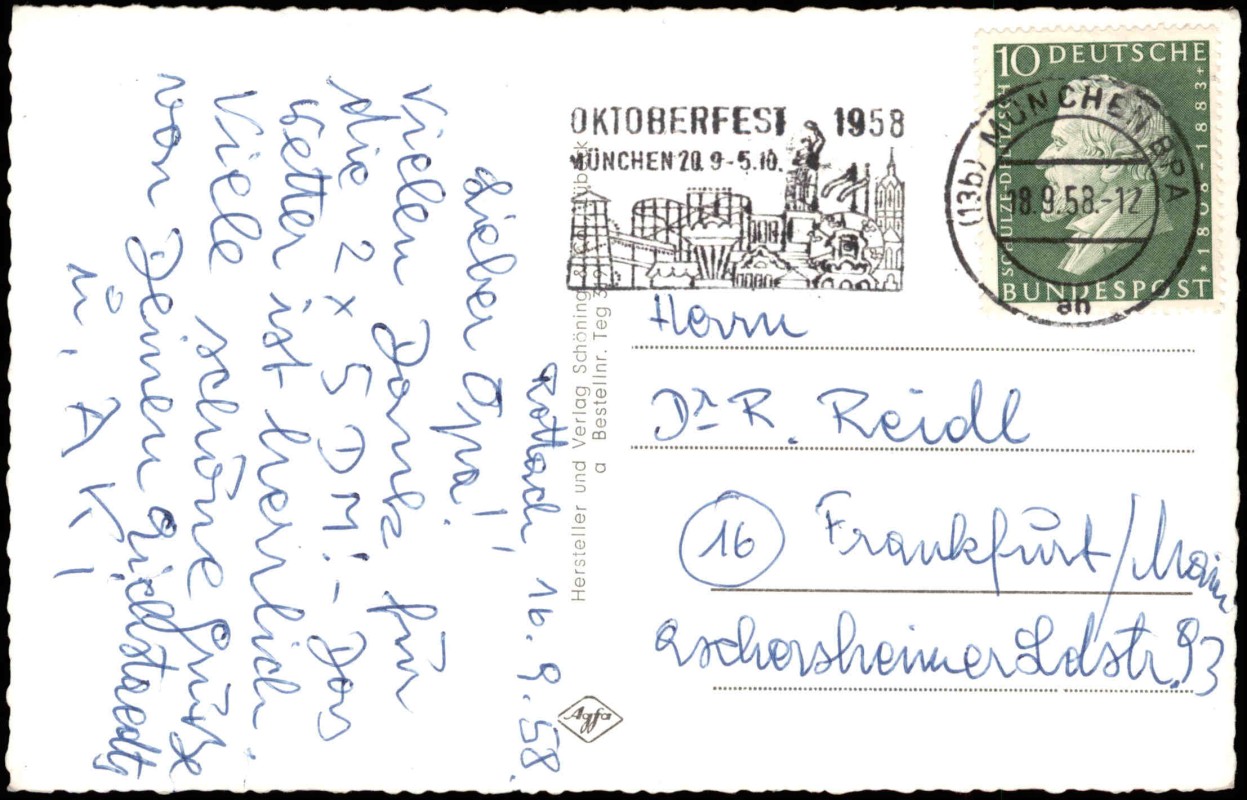 OKTOBERFEST 1958
MÜNCHEN 20.9-5.10.
10 DEUTSCHE
SCHULZE-DELITZSCH
*1808-1883+
BUNDESPOST
(13b) MÜNCHEN BPA
18.9.58.-12
an
Rottach, 16.9.58.
Lieber Opa!
Vielen Dank für
die 2 x 5 DM! - Das
Wetter ist herrlich.
Viele schöne Grüße
von Deinen
ü. A K!
Herrn
Dr. R. Reidl
16 Frankfurt/Main
Eschersheimer Ldstr. 93
Hersteller und Verlag Schöning & Co., Lübeck
a Bestellnr. Teg
Agfa